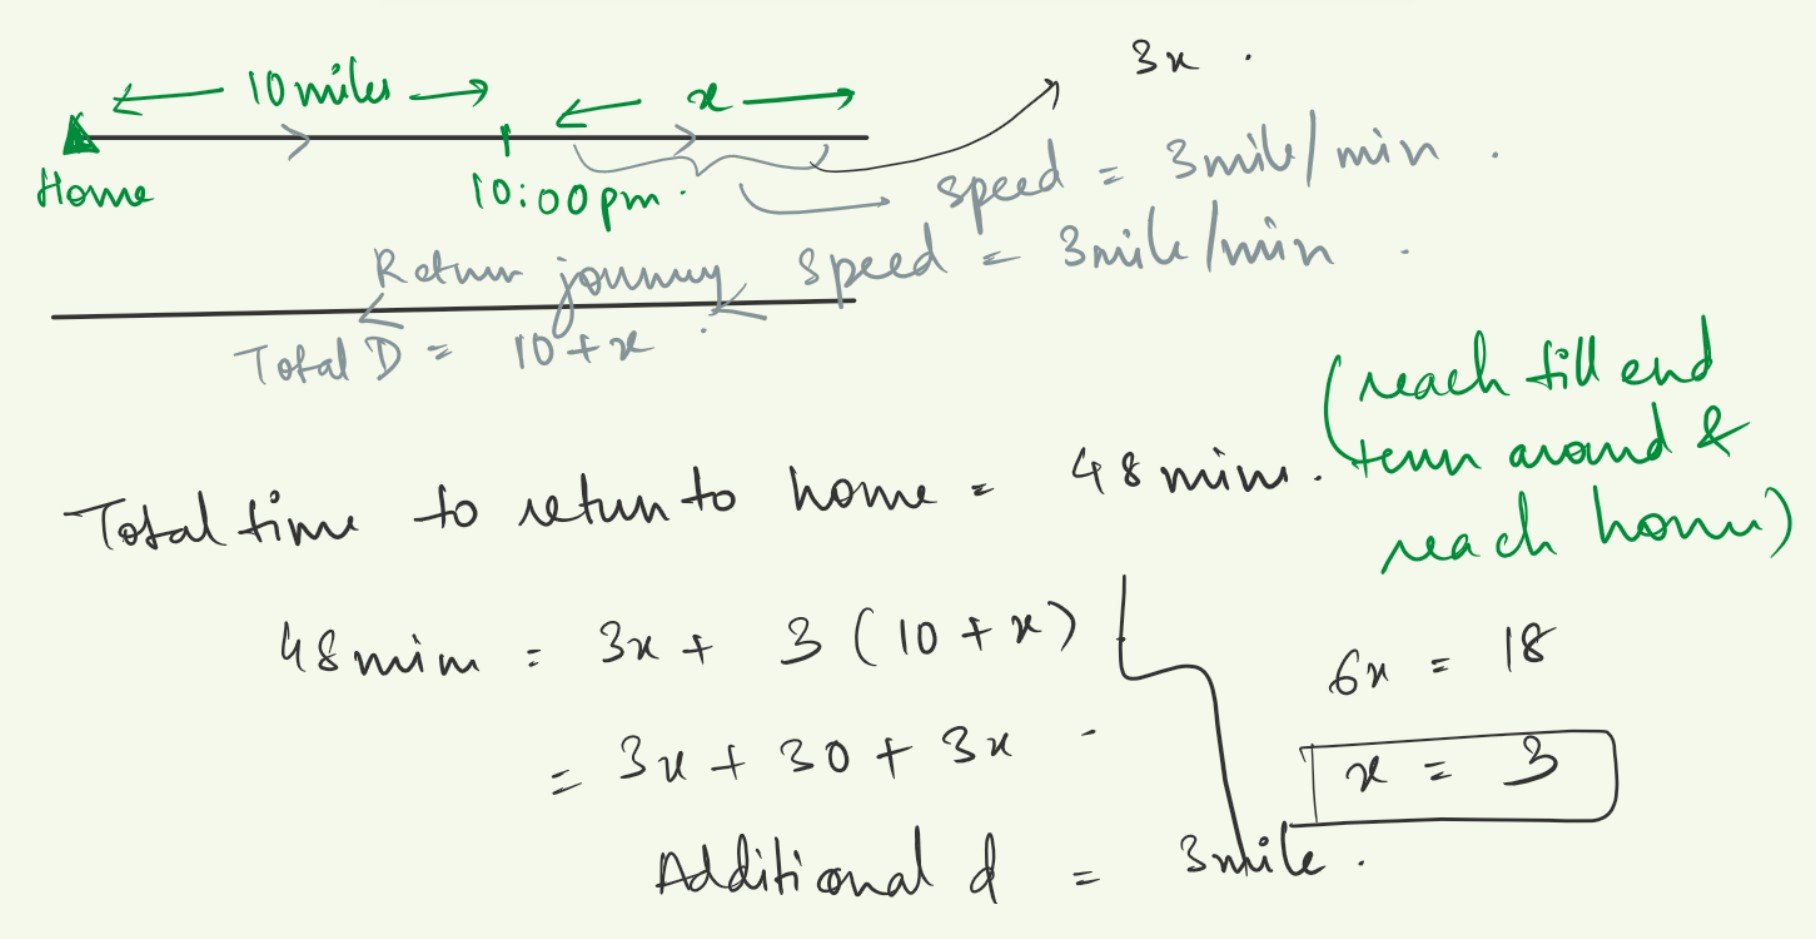 3x .
10 miles x
Home 10:00 pm . speed = 3 mile/min .
Return journey speed = 3 mile/min .
Total D = 10 + x .
(reach till end
turn around &
reach home)
Total time to return to home = 48 min .
48 min = 3x + 3 (10 + x)
= 3x + 30 + 3x
6x = 18
x = 3
Additional d = 3 mile .